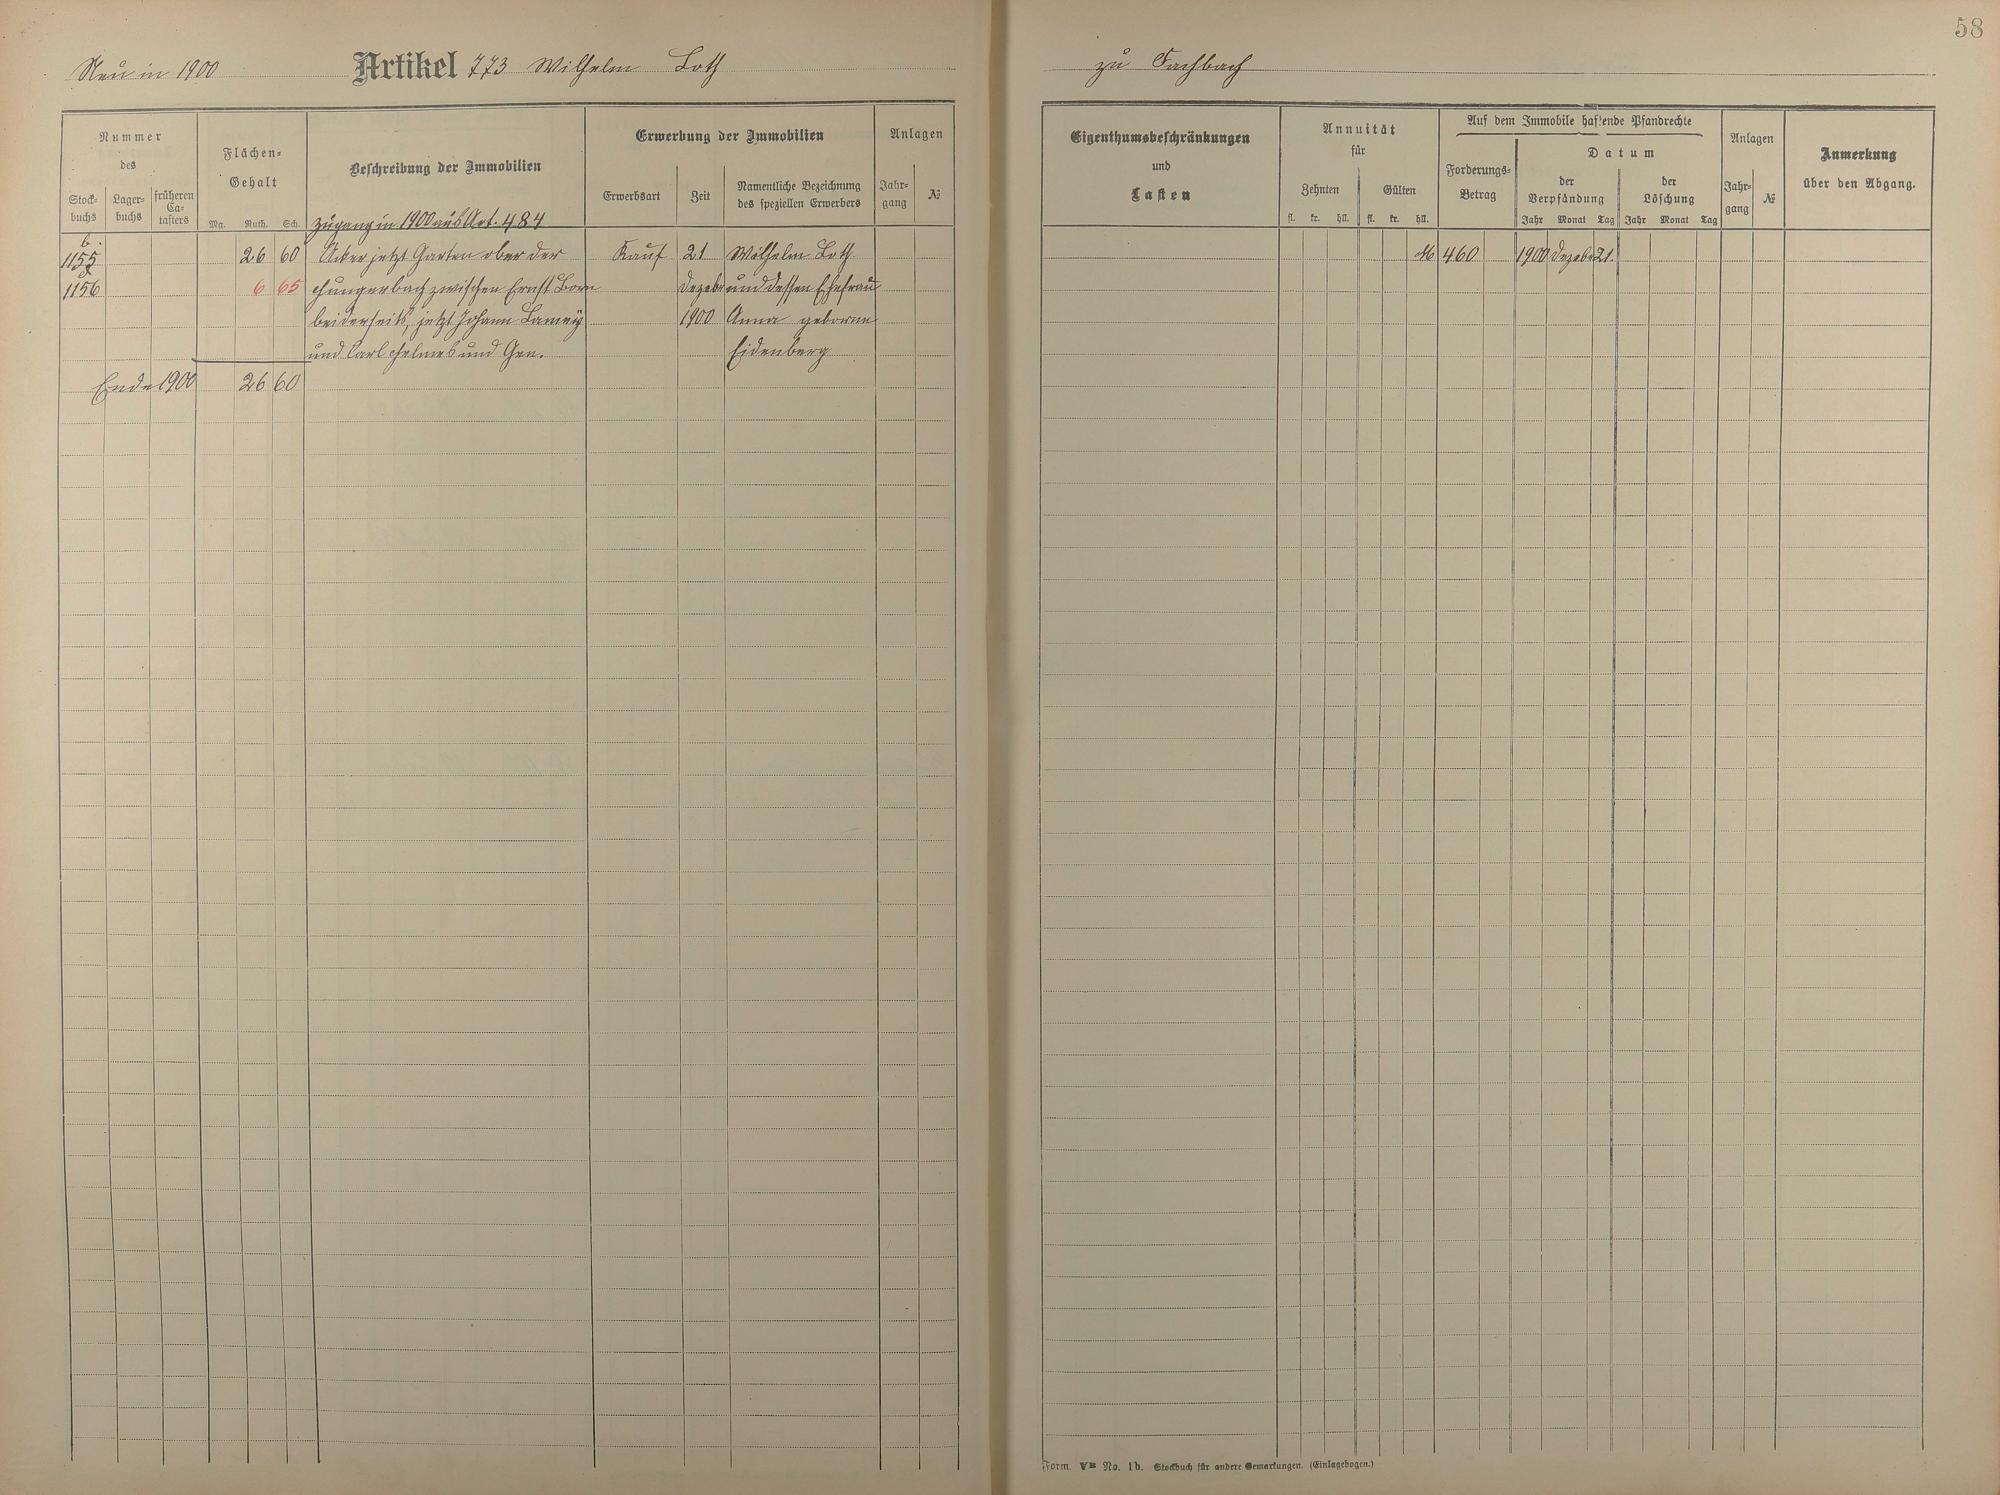 58
Neu in 1900 Artikel 773 Wilhelm Loth zu Fachbach
Nummer
des
Stock-
buchs
Lager-
buchs
früheren
Ca-
tasters
Flächen-
Gehalt
Mg. Ruth. Sch.
Beschreibung der Immobilien
Zugang in 1900 aus Art. 484
Erwerbung der Immobilien
Erwerbsart
Zeit
Namentliche Bezeichnung
des speziellen Erwerbers
Anlagen
Jahr-
gang
№
Eigenthumsbeschränkungen
und
Lasten
Annuität
für
Zehnten
Gülten
fl. kr. hll. fl. kr. hll.
Auf dem Immobile haftende Pfandrechte
Forderungs-
Betrag
Datum
der
Verpfändung
Jahr Monat Tag
der
Löschung
Jahr Monat Tag
Anlagen
Jahr-
gang
№
Anmerkung
über den Abgang.
b.
1155 26 60 Acker jetzt Garten ober der Kauf 21 Wilhelm Loth M 460 1900 Dezebr 21.
1156 6 65 Hungerbach zwischen Ernst Born Dezebr und dessen Ehefrau
beiderseits, jetzt Johann Lamey 1900 Anna geborene
und Carl Helmes und Gen. Eidenberg
Ende 1900 26 60
Form. VB No. 1b. Stockbuch für andere Gemarkungen. (Einlagebogen.)